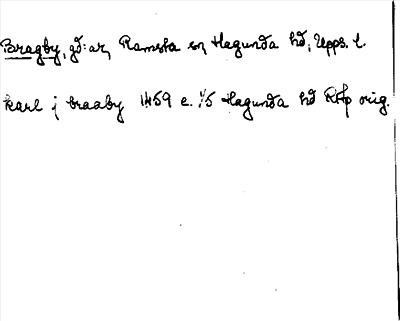 Bragby, gd:ar, Ramsta sn, Hagunda hd, Upps. l.
karl j braaby 1459 e. 1/5 Hagunda hd RAp orig.